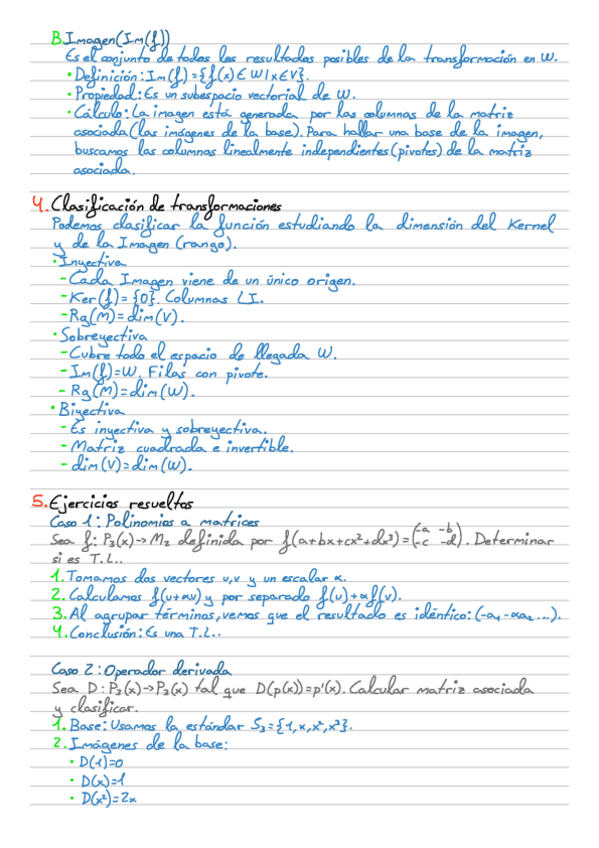 B. Imagen (Im(f))
Es el conjunto de todos los resultados posibles de la transformación en W.
• Definición: Im(f)={f(x)∈W|x∈V}.
• Propiedad: Es un subespacio vectorial de W.
• Cálculo: La imagen está generada por las columnas de la matriz
asociada (las imágenes de la base). Para hallar una base de la imagen,
buscamos las columnas linealmente independientes (pivotes) de la matriz
asociada.
4. Clasificación de transformaciones
Podemos clasificar la función estudiando la dimensión del Kernel
y de la Imagen (rango).
• Inyectiva
- Cada Imagen viene de un único origen.
- Ker(f)={0}. Columnas LI.
- Rg(M)=dim(V).
• Sobreyectiva
- Cubre todo el espacio de llegada W.
- Im(f)=W. Filas con pivote.
- Rg(M)=dim(W).
• Biyectiva
- Es inyectiva y sobreyectiva.
- Matriz cuadrada e invertible.
- dim(V)=dim(W).
5. Ejercicios resueltos
Caso 1: Polinomios a matrices
Sea f: P₃(x)→M₂ definida por f(a+bx+cx²+dx³)=(-a -b
-c -d). Determinar
si es T.L..
1. Tomamos dos vectores u,v y un escalar α.
2. Calculamos f(u+αv) y por separado f(u)+αf(v).
3. Al agrupar términos, vemos que el resultado es idéntico: (-a₁-αa₂...).
4. Conclusión: Es una T.L..
Caso 2: Operador derivada
Sea D: P₃(x)→P₃(x) tal que D(p(x))=p'(x). Calcular matriz asociada
y clasificar.
1. Base: Usamos la estándar S₃={1,x,x²,x³}.
2. Imágenes de la base:
• D(1)=0
• D(x)=1
• D(x²)=2x